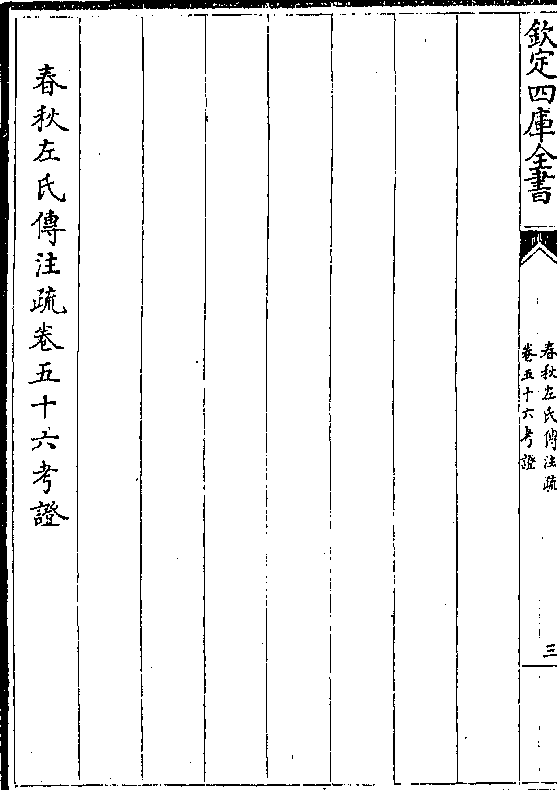 欽定四庫全書
春秋左氏傳注疏
卷五十六考證
三
春秋左氏傳注疏卷五十六考證